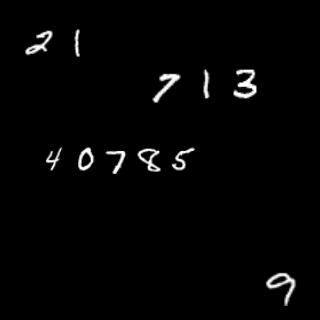 21
713
40785
9